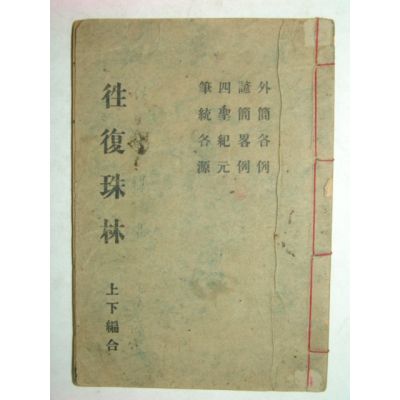 外簡各例
諺簡畧例
四聖紀元
筆統各源
徃復珠林
上下編合